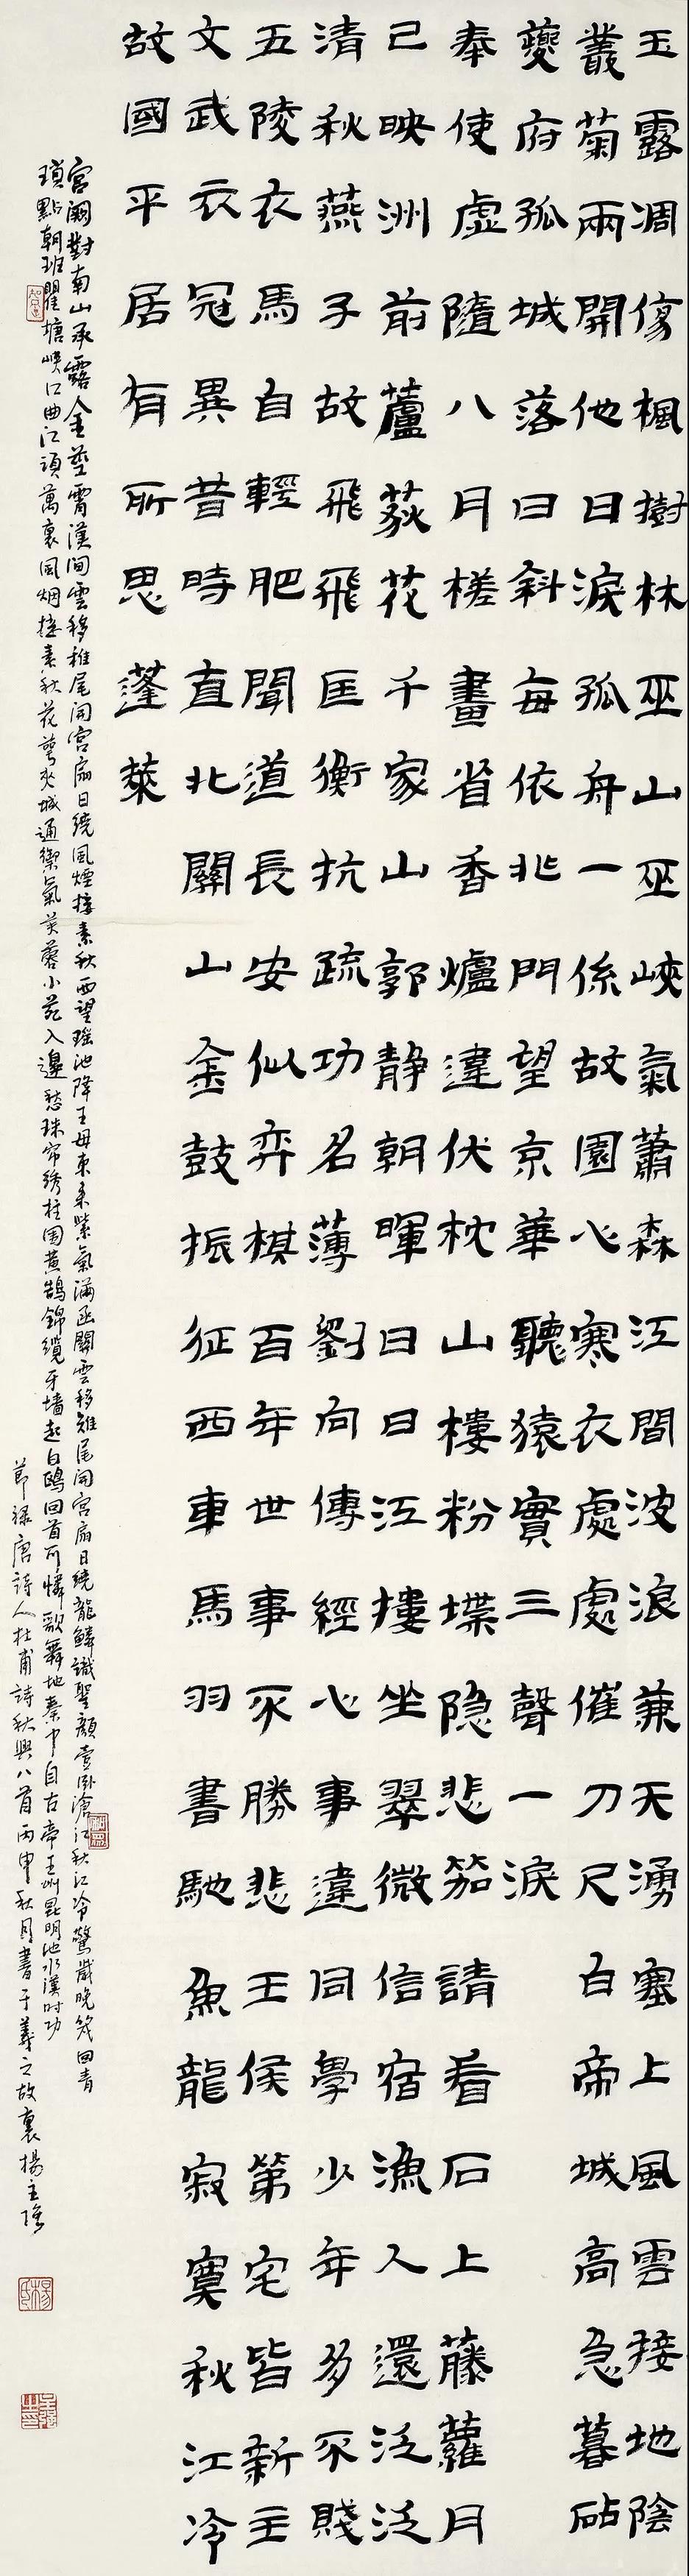 玉露凋傷楓樹林巫山巫峽氣蕭森江間波浪兼天湧塞上風雲接地陰
叢菊兩開他日淚孤舟一係故園心寒衣處處催刀尺白帝城高急暮砧
夔府孤城落日斜每依北門望京華聽猿實三聲一淚
奉使虛隨八月槎畫省香爐違伏枕山樓粉堞隐悲笳請看石上藤蘿月
已映洲前蘆荻花千家山郭静朝暉日日江摟坐翠微信宿漁人還泛泛
清秋燕子故飛飛匡衡抗疏功名薄劉向傳經心事違同學少年多不賤
五陵衣馬自輕肥聞道長安似弈棋百年世事不勝悲王侯第宅皆新主
文武衣冠異昔時直北關山金鼓振征西車馬羽書馳魚龍寂寞秋江冷
故國平居有所思蓬萊
宮闕對南山承露金莖霄漢間雲移雉尾開宮扇日繞風煙接素秋西望瑶池降王母東來紫氣滿函關雲移雉尾開宮扇日繞龍鱗識聖顏壹卧滄江秋江冷驚歲晚幾回青
瑣點朝班瞿塘峽口曲江頭萬裏風烟接素秋花萼夾城通禦氣芙蓉小苑入邊愁珠帘绣柱圍黄鵠錦纜牙墙起白鷗回首可憐歌舞地秦中自古帝王州昆明池水漢時功
節録唐詩人杜甫詩秋興八首丙申秋月書于羲之故裏楊主